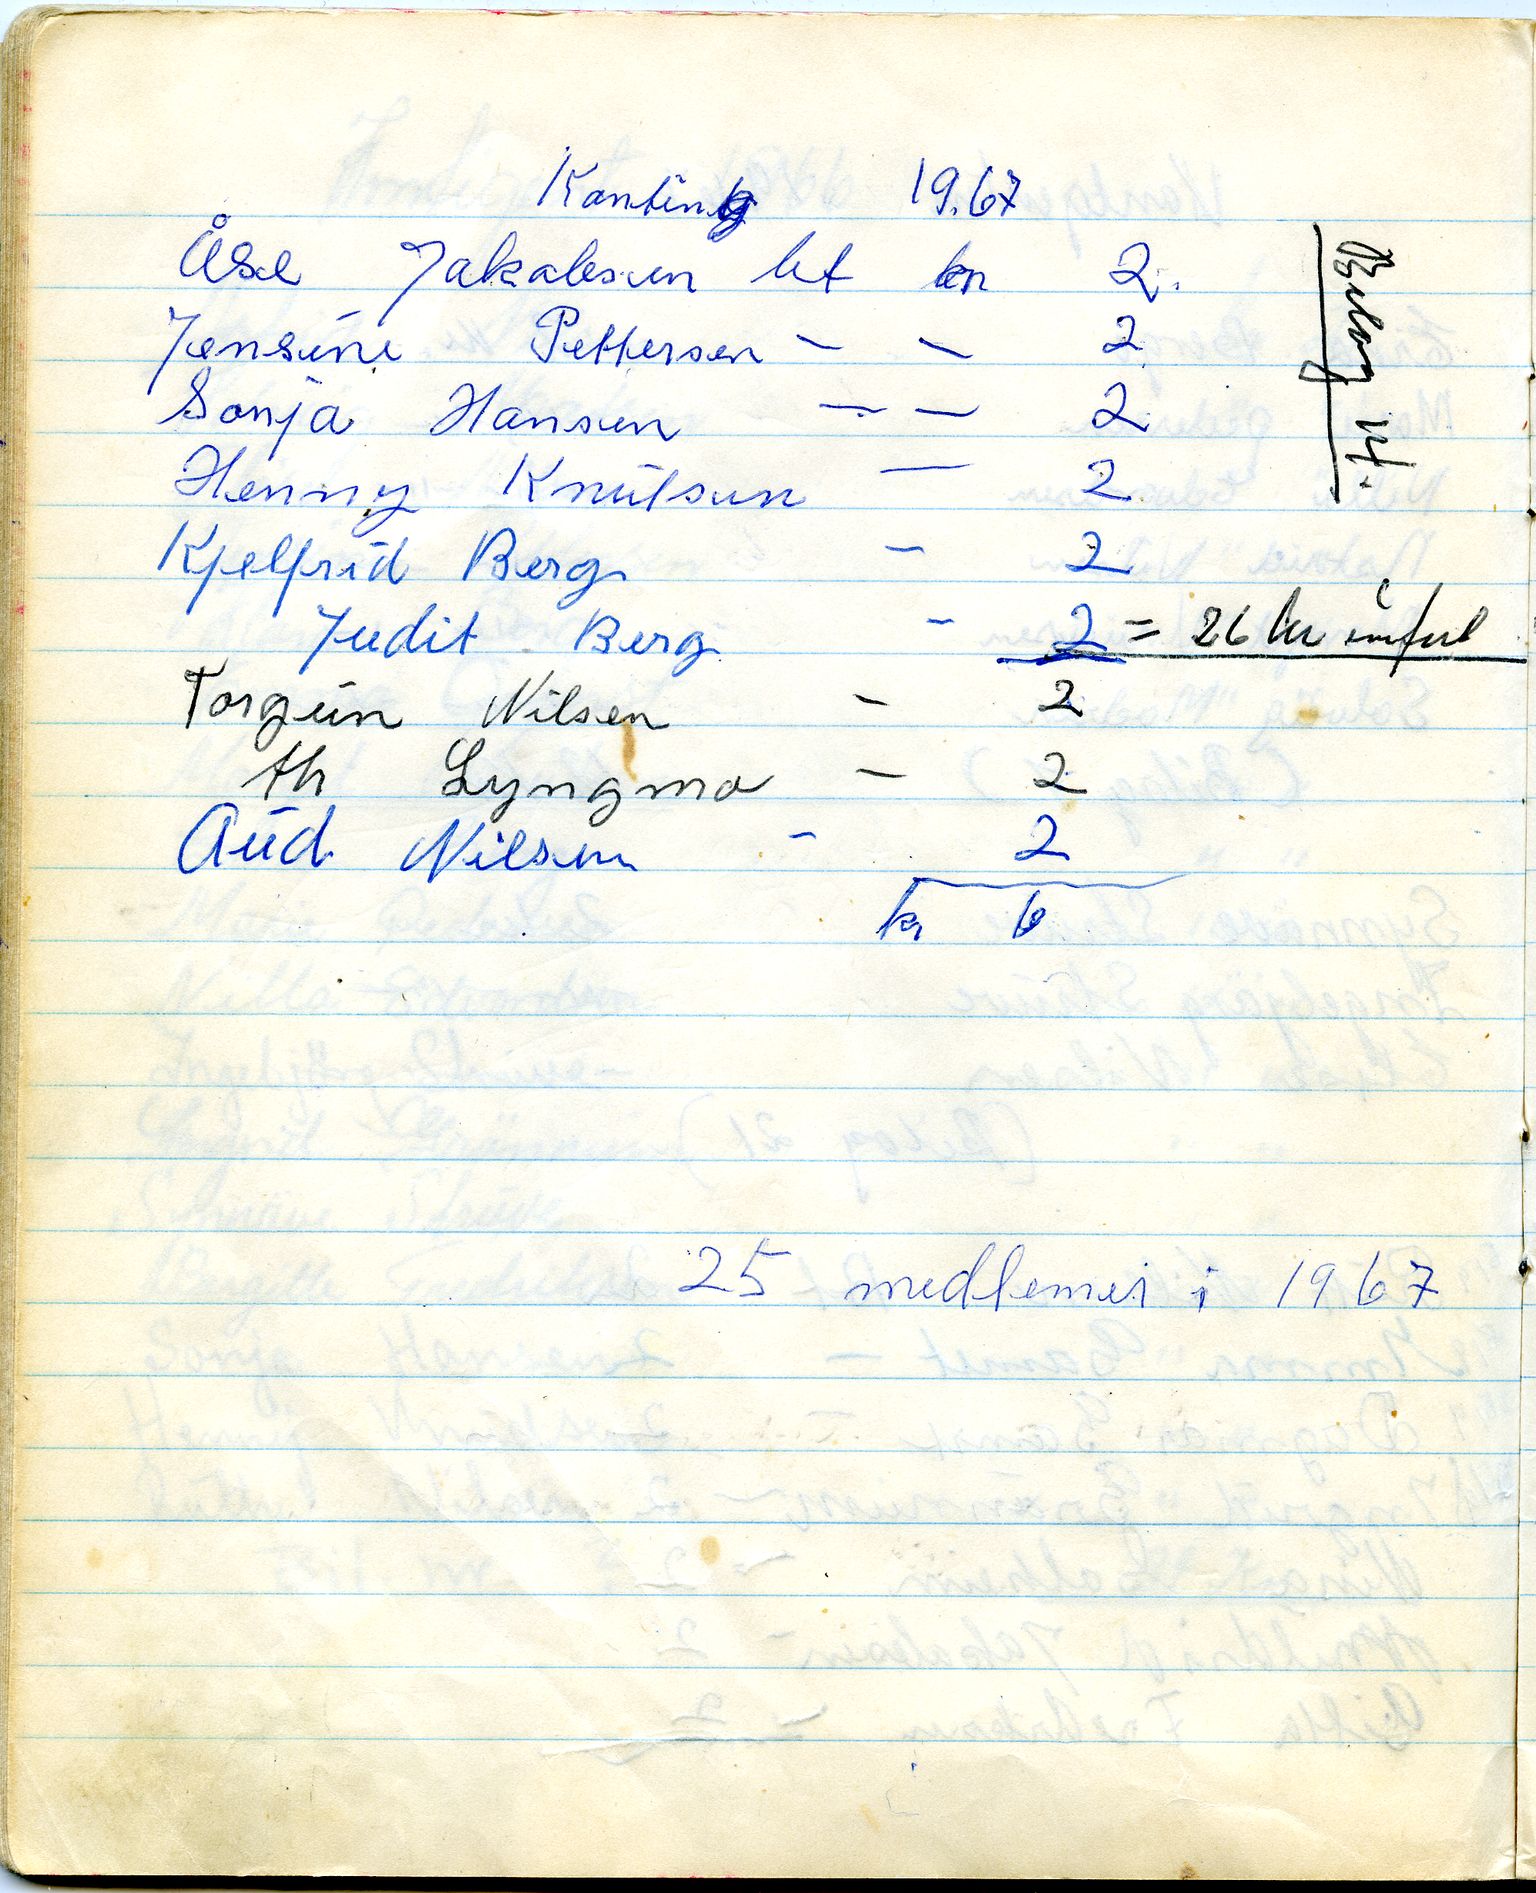 Konting 19.67
Åse Jakobsen bet kr 2.
Jensine Pettersen - - 2
Sonja Hansen - - 2
Henny Knutsen - 2
Kjelfrid Berg - 2
Judit Berg - 2 = 26 kr innført
Torgun Nilsen - 2
th Lyngmo - 2
Aud Nilsen - 2
kr 6
25 medlemer i 1967
Belag 14.